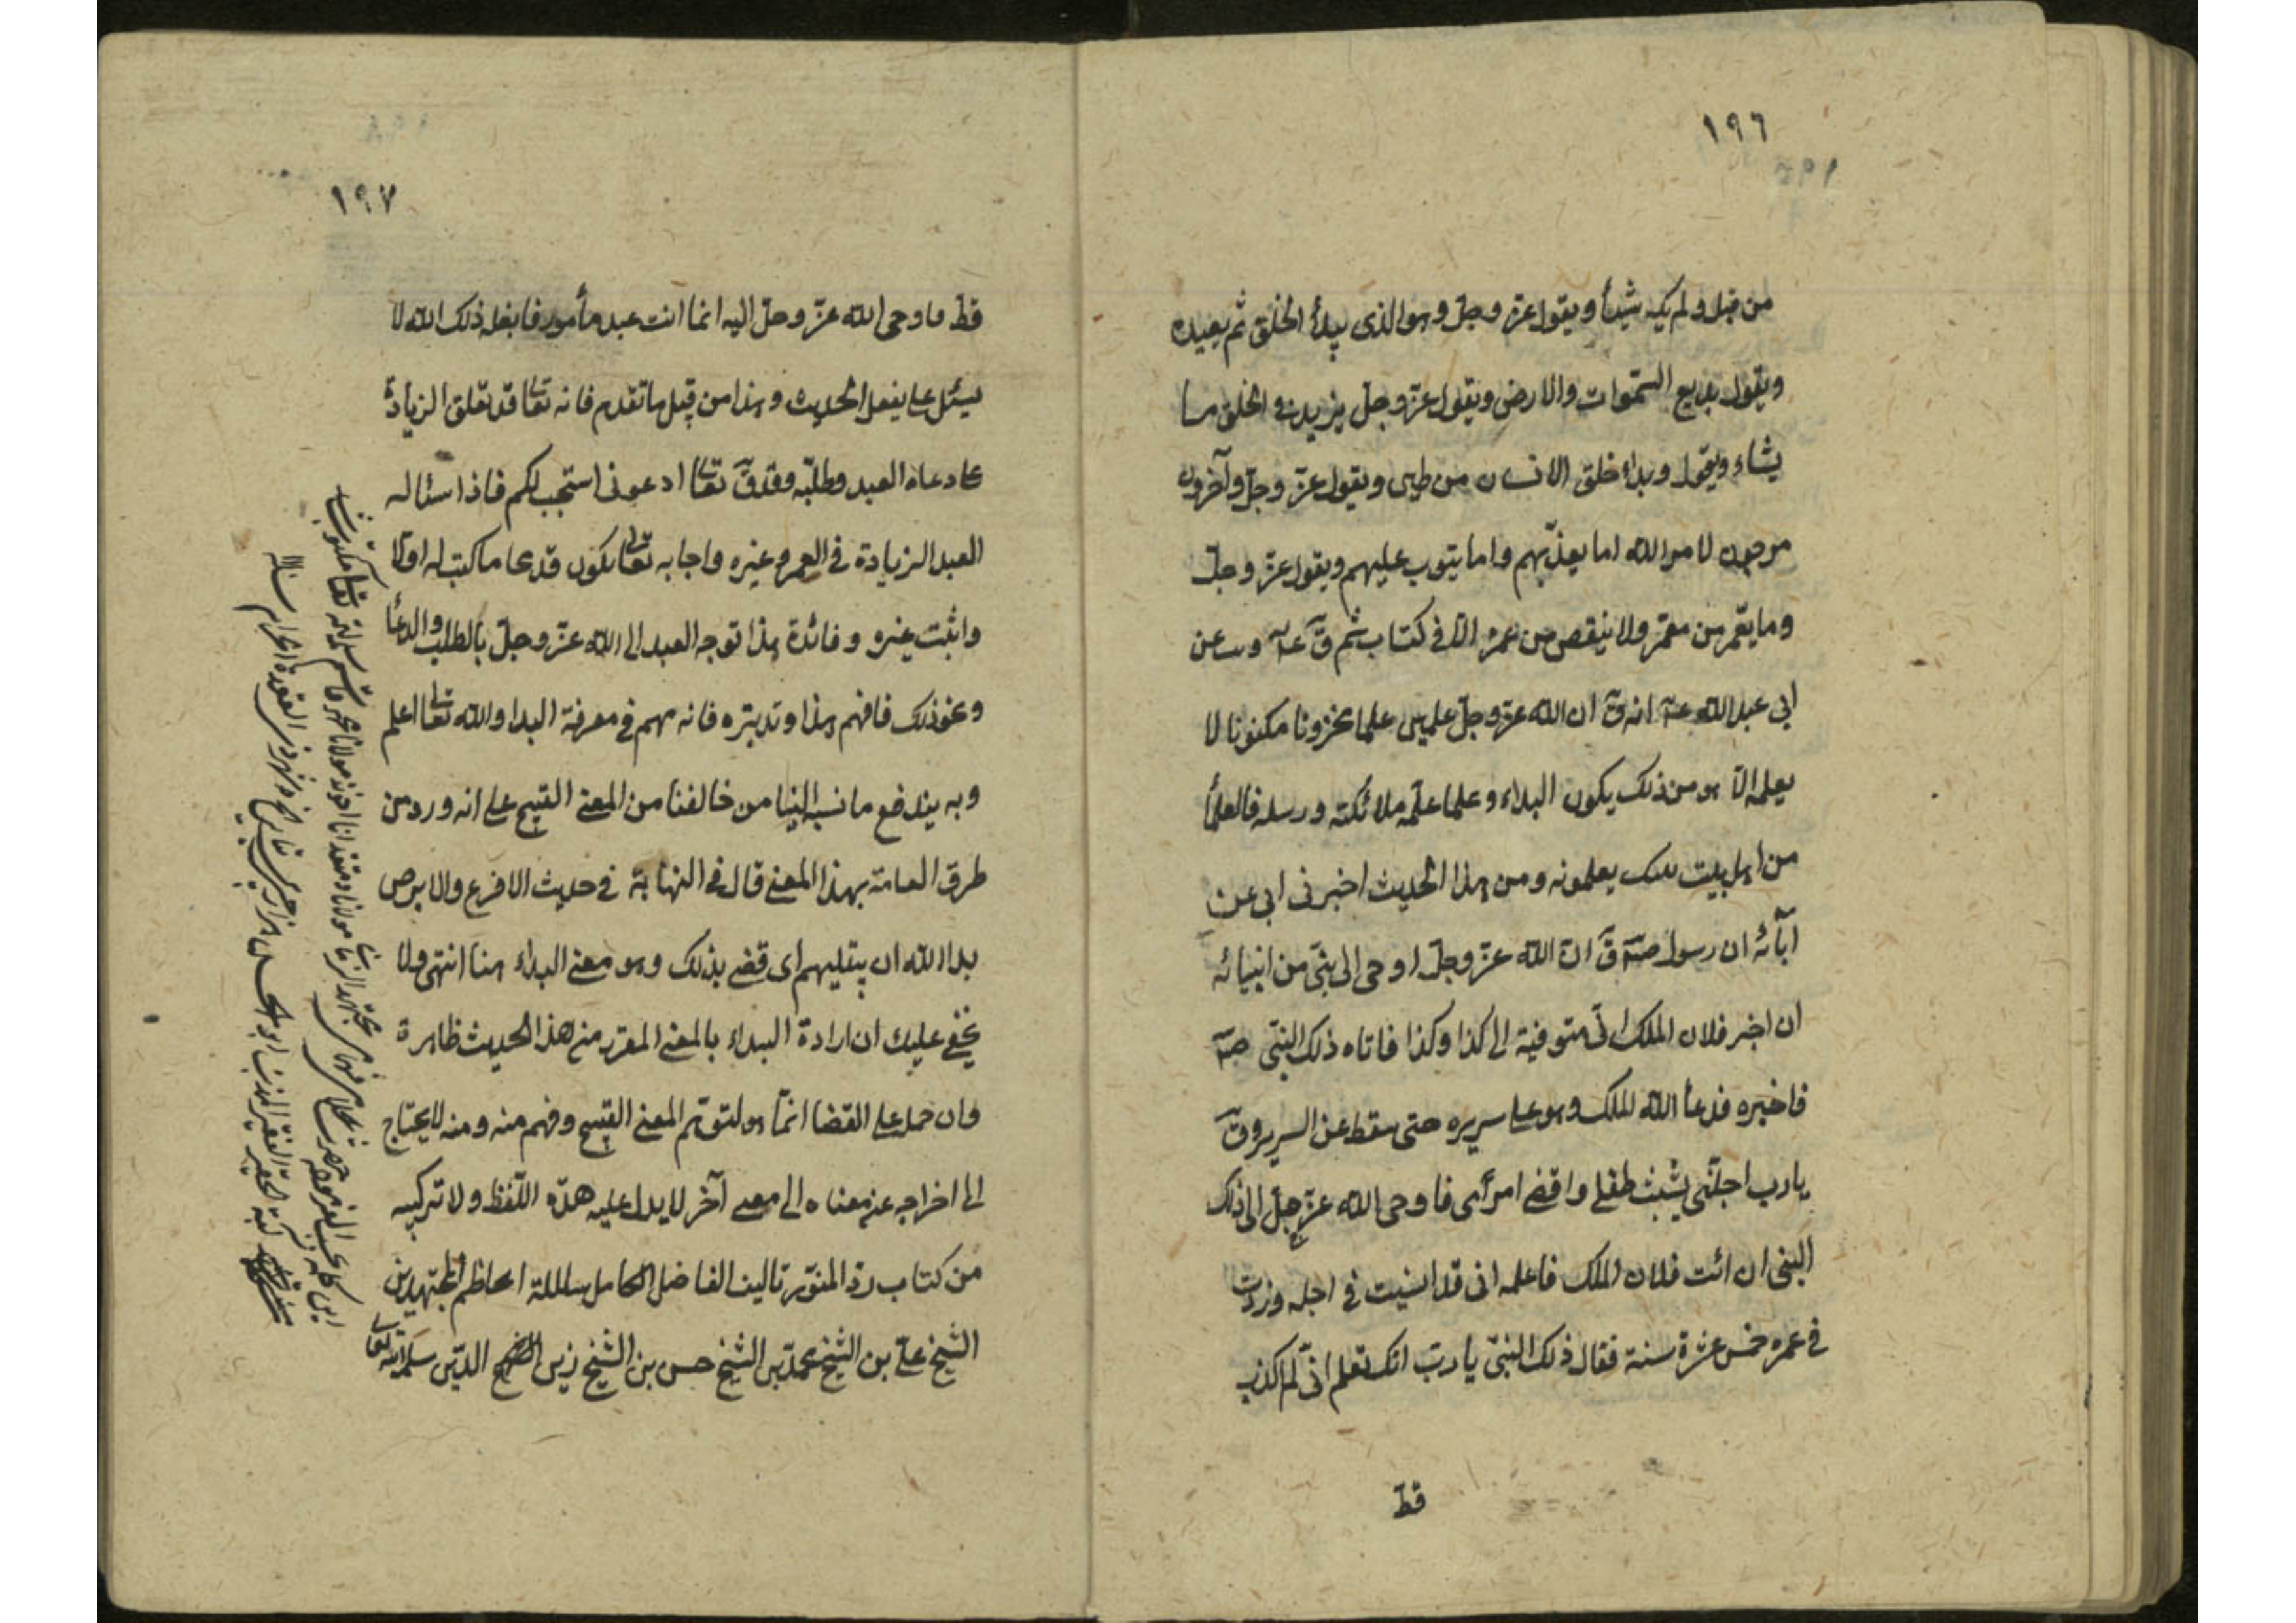 ١٩٦
من قبل ولم يك شيئا ويقول عزّ وجلّ وهو الذى يبدأ الخلق ثم يعيده
ويقول بديع السموات والارض ويقول عزّ وجلّ يزيد فى الخلق ما
يشاء ويقول وبداء خلق الانسان من طين ويقول عزّ وجلّ وآخرون
مرجون لامر الله اما يعذّبهم واما يتوب عليهم ويقول عزّ وجلّ
وما يعمّر من معمّر ولا ينقص من عمره الّا فى كتاب ثم قٓ
ابى عبد الله انه قٓ ان الله عزّ وجلّ علمين علما مخزونا مكنونا لا
يعلمه الّا هو من ذلك يكون البداء وعلما علّمه ملائكته ورسله فالعلمأ
من اهل بيت يعلمونه ومن هذا الحديث اخبرنى ابى عن
آبائه ان رسول قٓ انّ الله عزّ وجلّ اوحى الى نبىّ من انبيائه
ان اخبر فلان الملك انّى متوفيه الى كذا وكذا فاتاه ذلك النبىّ
فاخبره فدعأ الله الملك وهو على سريره حتى سقط عن السرير وقٓ
يا رب اجلّنى يشبّ طفلى واقضى امرى فاوحى الله عزّ وجلّ الى ذلك
النبى ان ائت فلان الملك فاعلمه انى قد انسيت فى اجله وزدت
فى عمره خمس عشرة سنة فقال ذلك النبىّ يا ربّ انّك تعلم انّى لم اكذب
قط
١٩٧
قط فاوحى الله عزّ وجلّ اليه انما انت عبد مأمور فابلغه ذلك الله لا
يسئل عما يفعل الحديث وهذا من قبيل ما تقدم فانه تعالى قد تعلق الزيادة
على دعاء العبد وطلبه وقد قٓ تعالى ادعونى استجب لكم فاذا سئاله
العبد الزيادة فى العمر وغيره واجابه تعالى يكون قد محا ما كتب له اولا
واثبت غيره وفائدة هذا توجه العبد الى الله عزّ وجلّ بالطلب والدعأ
ونحو ذلك فافهم هذا وتدبّره فانه مهم فى معرفة البدا والله تعالى اعلم
وبه يندفع ما نسبه الينا من خالفنا من المعنى القبيح على انه ورد من
طرق العامة بهذا المعنى قال فى النهاية فى حديث الاقرع والابرص
بدا الله ان يبتليهم اى قضى بذلك وهو معنى البداء هنا انتهى ولا
يخفى عليك ان ارادة البداء بالمعنى المقرر من هذا الحديث ظاهرة
وان حمل على القضا انّما هو لتوهّم المعنى القبيح وفهم منه ومنه لا يحتاج
الى اخراجه عن معناه الى معنى آخر لا يدل عليه هذه اللّفظ ولا تركيبه
من كتاب درّ المنثور تاليف الفاضل الكامل سلالة اعاظم المجتهدين
الشيخ علىّ بن الشيخ محمد بن الشيخ حسن بن الشيخ زين الدّين سلمه الله تعالى